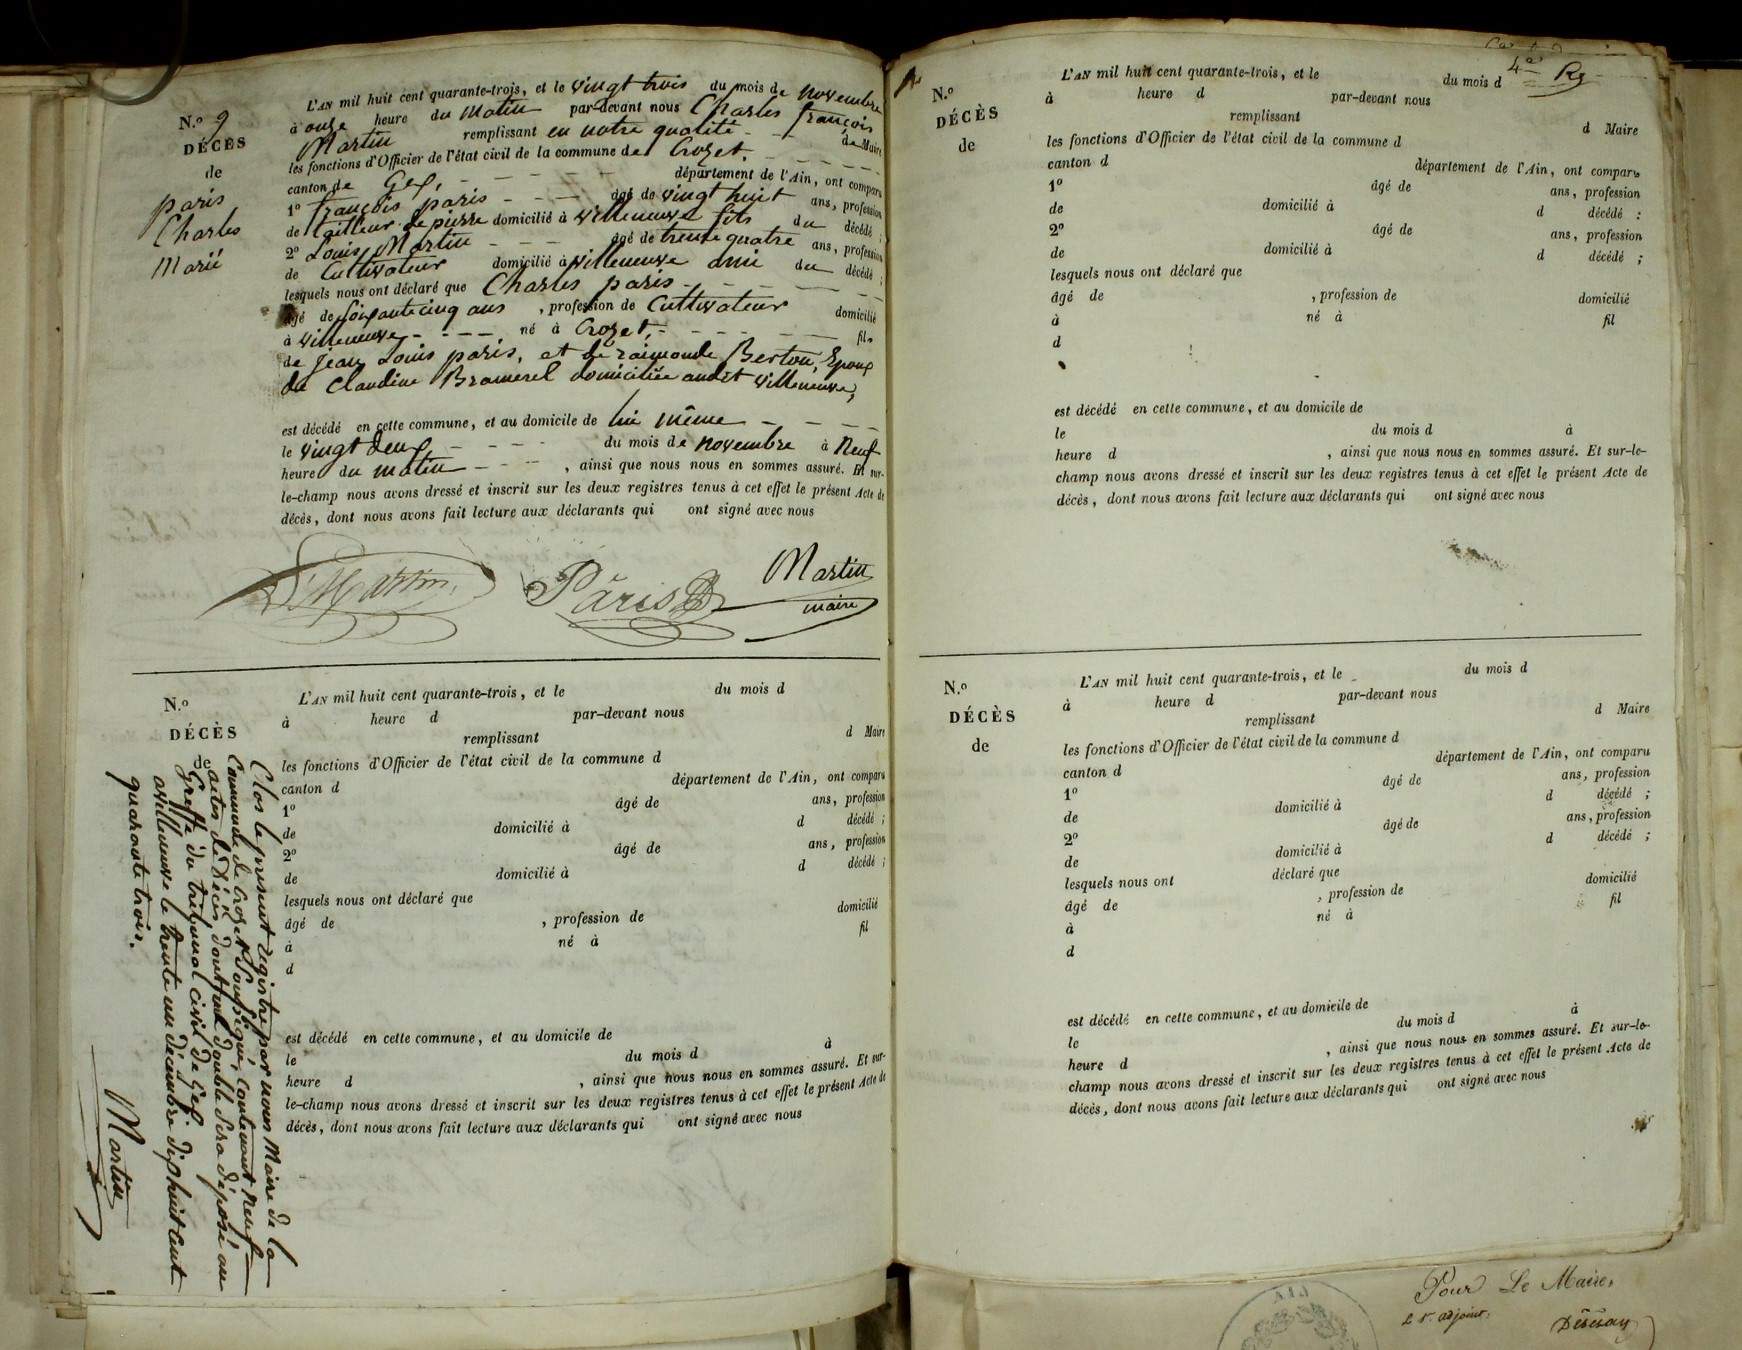 N.º 9
DÉCÈS
de
paris
Charles
Marié
L'AN mil huit cent quarante-trois, et le vingt trois du mois de novembre
à onze heure du matin par-devant nous Charles françois
Martin remplissant en notre qualité de Maire
les fonctions d'Officier de l'état civil de la commune de Crozet.
canton de Gex, département de l'Ain, ont comparu
1º françois paris âgé de vingt huit ans, profession
de tailleur de pierre domicilié à villeneuve fils du décédé ;
2º Louis Martin âgé de trente quatre ans, profession
de Cultivateur domicilié à villeneuve ami du décédé ;
lesquels nous ont déclaré que Charles paris
âgé de soixante cinq ans , profession de Cultivateur domicilié
à villeneuve né à Crozet, fils
de jean Louis paris, et de raimonde Berton, Epoux
de Claudine Bramerel domiciliée audit villeneuve,
est décédé en cette commune, et au domicile de lui même
le vingt deux du mois de novembre à Neuf
heure du matin , ainsi que nous nous en sommes assuré. Et sur-
le-champ nous avons dressé et inscrit sur les deux registres tenus à cet effet le présent Acte de
décès, dont nous avons fait lecture aux déclarants qui ont signé avec nous
L. Martin Pâris Martin
maire
N.º
DÉCÈS
de
L'AN mil huit cent quarante-trois, et le du mois d
à heure d par-devant nous
remplissant d Maire
les fonctions d'Officier de l'état civil de la commune d
canton d département de l'Ain, ont comparu
1º âgé de ans, profession
de domicilié à d décédé ;
2º âgé de ans, profession
de domicilié à d décédé ;
lesquels nous ont déclaré que
âgé de , profession de domicilié
à né à fil
d
est décédé en cette commune, et au domicile de
le du mois d à
heure d , ainsi que nous nous en sommes assuré. Et sur-
le-champ nous avons dressé et inscrit sur les deux registres tenus à cet effet le présent Acte de
décès, dont nous avons fait lecture aux déclarants qui ont signé avec nous
Clos le présent registre par nous Maire de la
Commune de Crozet Soussigné, contenant neuf
actes de Décès, dont un double sera déposé au
Greffe du tribunal civil de Gex
a villeneuve le trente un décembre dix huit cent
quarante trois.
Martin
4e Rg
N.º
DÉCÈS
de
L'AN mil huit cent quarante-trois, et le du mois d
à heure d par-devant nous
remplissant d Maire
les fonctions d'Officier de l'état civil de la commune d
canton d département de l'Ain, ont comparu
1º âgé de ans, profession
de domicilié à d décédé :
2º âgé de ans, profession
de domicilié à d décédé ;
lesquels nous ont déclaré que
âgé de , profession de domicilié
à né à fil
d
est décédé en cette commune, et au domicile de
le du mois d à
heure d , ainsi que nous nous en sommes assuré. Et sur-le-
champ nous avons dressé et inscrit sur les deux registres tenus à cet effet le présent Acte de
décès, dont nous avons fait lecture aux déclarants qui ont signé avec nous
N.º
DÉCÈS
de
L'AN mil huit cent quarante-trois, et le du mois d
à heure d par-devant nous
remplissant d Maire
les fonctions d'Officier de l'état civil de la commune d
canton d département de l'Ain, ont comparu
1º âgé de ans, profession
de domicilié à d décédé ;
2º âgé de ans, profession
de domicilié à d décédé ;
lesquels nous ont déclaré que
âgé de , profession de domicilié
à né à fil
d
est décédé en cette commune, et au domicile de
le du mois d à
heure d , ainsi que nous nous en sommes assuré. Et sur-le-
champ nous avons dressé et inscrit sur les deux registres tenus à cet effet le présent Acte de
décès, dont nous avons fait lecture aux déclarants qui ont signé avec nous
Pour Le Maire,
adjoint,
AIN